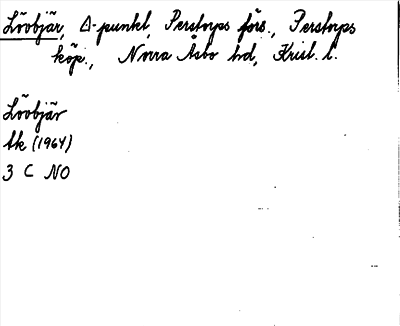 Lövbjär, Δ-punkt, Perstorps förs., Perstorps
köp., Norra Åsbo hd, Krist. l.
Lövbjär
tk (1964)
3 C NO